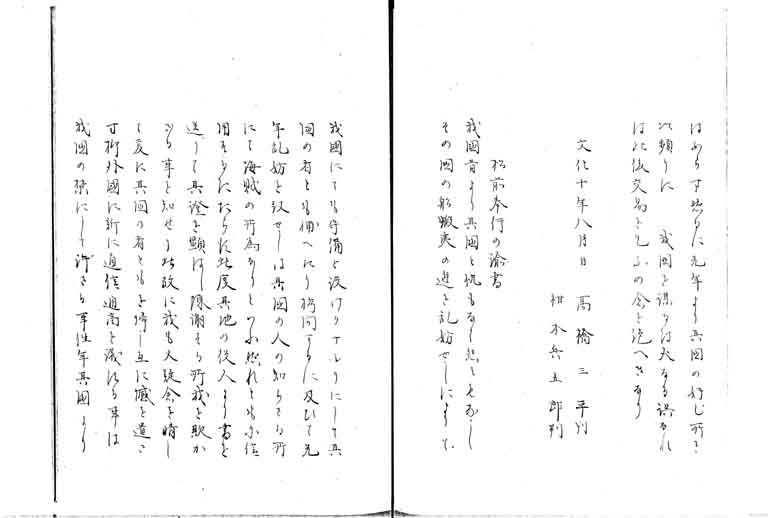 はあらす然るに先年より其国の好む所を
以頻りに　我国を謀るは大なる誤なれ
は此後交易をこふの念を絶へきなり
文化十年八月日　高橋三平判
柑本兵五郎判
松前奉行の諭書
我国昔より其国と仇もなく怨もなかりし
その国の船蝦夷の辺を乱妨せしによりて
我国にても守備を設けすしてありにし其
国の者とも捕へたり推問するに及ひて先
年乱妨を致せしは其国の人の知らさる所
にて海賊の所為なりといふ然れとも不信
用せしにたらす此度其地の役人より書を
送りて其證を顕はし陳謝する所我を欺か
さる事を知せり此故に我も大疑念を晴し
て爰に其国の者ともを帰し互に憾を遺さ
す抑外国に新に通信通商を議する事は
我国の禁にして許さる事往年其国より